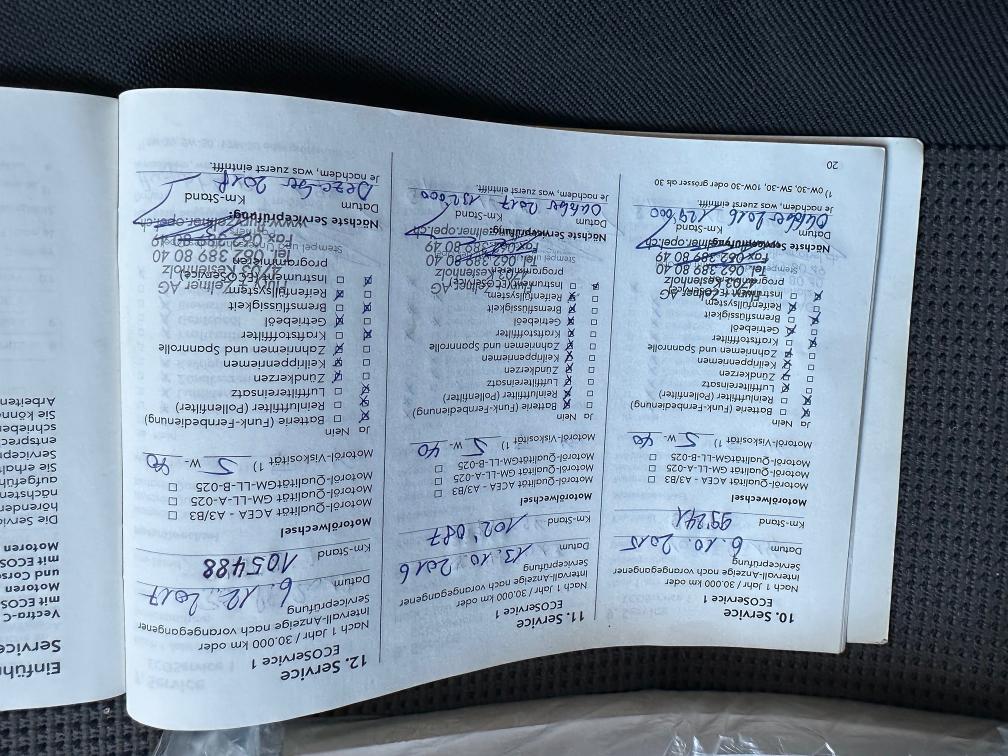 10. Service
ECOService 1
Nach 1 Jahr / 30.000 km oder
Intervall-Anzeige nach vorangegangener
Serviceprüfung
Datum 6.10.2015
Km-Stand 99'241
Motorölwechsel
Motoröl-Qualität ACEA - A3/B3 □
Motoröl-Qualität GM-LL-A-025 □
Motoröl-Qualität GM-LL-B-025 □
Motoröl-Viskosität 1) 5 W- 40
Ja Nein
Batterie (Funk-Fernbedienung)
Reinluftfilter (Pollenfilter)
Luftfiltereinsatz
Zündkerzen
Keilrippenriemen
Zahnriemen und Spannrolle
Kraftstofffilter
Getriebeöl
Bremsflüssigkeit
Reifenfüllsystem
Instrument (ECOService)
programmieren
4703 Kestenholz
Tel. 062 389 80 40
Fax 062 389 80 49
Nächste Serviceprüfung:
Datum Km-Stand
Oktober 2016 129'000
Je nachdem, was zuerst eintrifft.
1) 0W-30, 5W-30, 10W-30 oder grösser als 30
20
11. Service
ECOService 1
Nach 1 Jahr / 30.000 km oder
Intervall-Anzeige nach vorangegangener
Serviceprüfung
Datum 13.10.2016
Km-Stand 102'087
Motorölwechsel
Motoröl-Qualität ACEA - A3/B3 □
Motoröl-Qualität GM-LL-A-025 □
Motoröl-Qualität GM-LL-B-025 □
Motoröl-Viskosität 1) 5 W- 40
Ja Nein
Batterie (Funk-Fernbedienung)
Reinluftfilter (Pollenfilter)
Luftfiltereinsatz
Zündkerzen
Keilrippenriemen
Zahnriemen und Spannrolle
Kraftstofffilter
Getriebeöl
Bremsflüssigkeit
Reifenfüllsystem
Instrument (ECOService)
programmieren
4703 Kestenholz
Tel. 062 389 80 40
Fax 062 389 80 49
Nächste Serviceprüfung:
Datum Km-Stand
Oktober 2017 132'000
Je nachdem, was zuerst eintrifft.
12. Service
ECOService 1
Nach 1 Jahr / 30.000 km oder
Intervall-Anzeige nach vorangegangener
Serviceprüfung
Datum 6.12.2017
Km-Stand 105488
Motorölwechsel
Motoröl-Qualität ACEA - A3/B3 □
Motoröl-Qualität GM-LL-A-025 □
Motoröl-Qualität GM-LL-B-025 □
Motoröl-Viskosität 1) 5 W- 40
Ja Nein
Batterie (Funk-Fernbedienung)
Reinluftfilter (Pollenfilter)
Luftfiltereinsatz
Zündkerzen
Keilrippenriemen
Zahnriemen und Spannrolle
Kraftstofffilter
Getriebeöl
Bremsflüssigkeit
Reifenfüllsystem
Instrument (ECOService)
programmieren
4703 Kestenholz
Tel. 062 389 80 40
Fax 062 389 80 49
Nächste Serviceprüfung:
Datum Km-Stand
Dezember 2018
Je nachdem, was zuerst eintrifft.
Einführ
Service
Vectra-C
mit ECOS
Motoren
und Corsa
mit ECOS
Motoren
Die Service
hörenden
nächsten
aufgeführ
Sie erhalt
Service
entsprec
schieben
Sie könne
Arbeiten